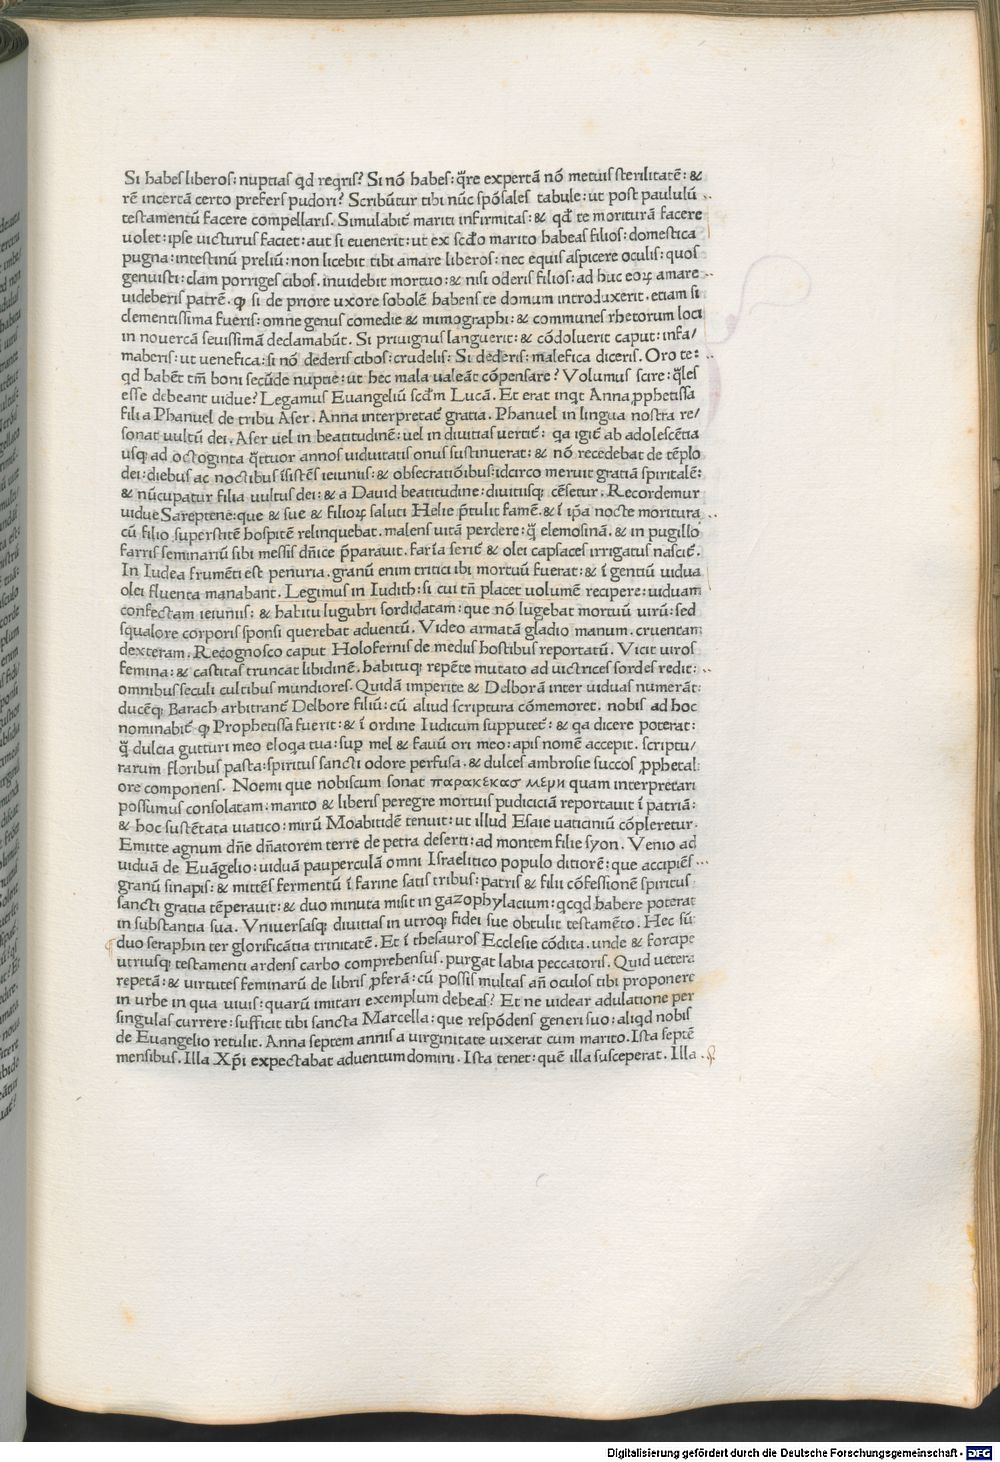 Si habes liberos: nuptias qd reqris? Si nõ habes: q̃re expertã nõ metuis sterilitatẽ: &
rẽ incertã certo prefers pudori? Scribũtur tibi nũc spõsales tabule: ut post paululũ
testamentũ facere compellaris. Simulabit̃ mariti infirmitas: & qd̃ te moriturã facere
uolet: ipse uicturus faciet: aut si euenerit: ut ex scdo marito habeas filios: domestica
pugna: intestinũ preliũ: non licebit tibi amare liberos: nec equis aspicere oculis: quos
genuisti: clam porriges cibos. inuidebit mortuo: & nisi oderis filios: ad huc eoꝝ amare
uideberis patrẽ. ꝙ si de priore uxore sobolẽ habens te domum introduxerit. etiam si
clementissima fueris: omne genus comedie & mimographi: & communes rhetorum loci
in nouercã seuissimã declamabũt. Si priuignus languerit: & cõdoluerit caput: infa/
maberis: ut uenefica: si nõ dederis cibos: crudelis: Si dederis: malefica diceris. Oro te:
qd habẽt tm̃ boni secũde nuptie: ut hec mala ualeãt cõpensare? Volumus scire: q̃les
esse debeant uidue? Legamus Euangeliũ scdm̃ Lucã. Et erat inqt Anna ꝓphetissa
filia Phanuel de tribu Aser. Anna interpretat̃ gratia. Phanuel in lingua nostra re/
sonat uultũ dei. Aser uel in beatitudinẽ: uel in diuitias uertit̃: qa igit̃ ab adolescẽtia
usq; ad octoginta q̃ttuor annos uiduitatis onus sustinuerat: & nõ recedebat de tẽplo
dei: diebus ac noctibus ĩsistẽs ieiuniis: & obsecratiõibus: idcirco meruit gratiã spiritalẽ:
& nũcupatur filia uultus dei: & a Dauid beatitudine: diuitiisq; cẽsetur. Recordemur
uidue Sareptene: que & sue & filioꝝ saluti Helie p̃tulit famẽ. & ĩ ip̃a nocte moritura
cũ filio superstitẽ hospitẽ relinquebat. malens uitã perdere: q̃ elemosinã. & in pugillo
farris seminariũ sibi messis dñice p̃parauit. farĩa serit̃ & olei capsaces irrigatus nascit̃.
In Iudea frumẽti est penuria. granũ enim tritici ibi mortuũ fuerat: & ĩ gentiũ uidua
olei fluenta manabant. Legimus in Iudith: si cui tñ placet uolumẽ recipere: uiduam
confectam ieiuniis: & habitu lugubri sordidatam: que nõ lugebat mortuũ uirũ: sed
squalore corporis sponsi querebat aduentũ. Video armatã gladio manum. cruentam
dexteram. Recognosco caput Holofernis de mediis hostibus reportatũ. Vicit uiros
femina: & castitas truncat libidinẽ. habituq; repẽte mutato ad uictrices sordes redit:
omnibus seculi cultibus mundiores. Quidã imperite & Delborã inter uiduas numerãt:
ducẽq; Barach arbitrant̃ Delbore filiũ: cũ aliud scriptura cõmemoret. nobis ad hoc
nominabit̃ ꝙ Prophetissa fuerit: & ĩ ordine Iudicum supputet̃: & qa dicere poterat:
q̃ dulcia gutturi meo eloqa tua: suꝑ mel & fauũ ori meo: apis nomẽ accepit. scriptu/
rarum floribus pasta: spiritus sancti odore perfusa. & dulces ambrosie succos ꝓphetali
ore componens. Noemi que nobiscum sonat παρακεκασ μερη quam interpretari
possumus consolatam: marito & liberis peregre mortuis pudiciciã reportauit ĩ patriã:
& hoc sustẽtata uiatico: mirũ Moabitidẽ tenuit: ut illud Esaie uaticiniũ cõpleretur.
Emitte agnum dñe dñatorem terre de petra deserti: ad montem filie syon. Venio ad
uiduã de Euãgelio: uiduã pauperculã omni Israelitico populo ditiorẽ: que accipiẽs
granũ sinapis: & mittẽs fermentũ ĩ farine satis tribus: patris & filii cõfessionẽ spiritus
sancti gratia tẽperauit: & duo minuta misit in gazophylacium: qcqd habere poterat
in substantia sua. Vniuersasq; diuitias in utroq; fidei sue obtulit testamẽto. Hec sũt
duo seraphin ter glorificãtia trinitatẽ. Et ĩ thesauros Ecclesie cõdita. unde & forcipe
utriusq; testamenti ardens carbo comprehensus. purgat labia peccatoris. Quid uetera
repetã: & uirtutes feminarũ de libris ꝓferã: cũ possis multas añ oculos tibi proponere
in urbe in qua uiuis: quarũ imitari exemplum debeas? Et ne uidear adulatione per
singulas currere: sufficit tibi sancta Marcella: que respõdens generi suo: aliqd nobis
de Euangelio retulit. Anna septem annis a uirginitate uixerat cum marito. Ista septẽ
mensibus. Illa Xp̃i expectabat aduentum domini. Ista tenet: quẽ illa susceperat. Illa
Digitalisierung gefördert durch die Deutsche Forschungsgemeinschaft - DFG